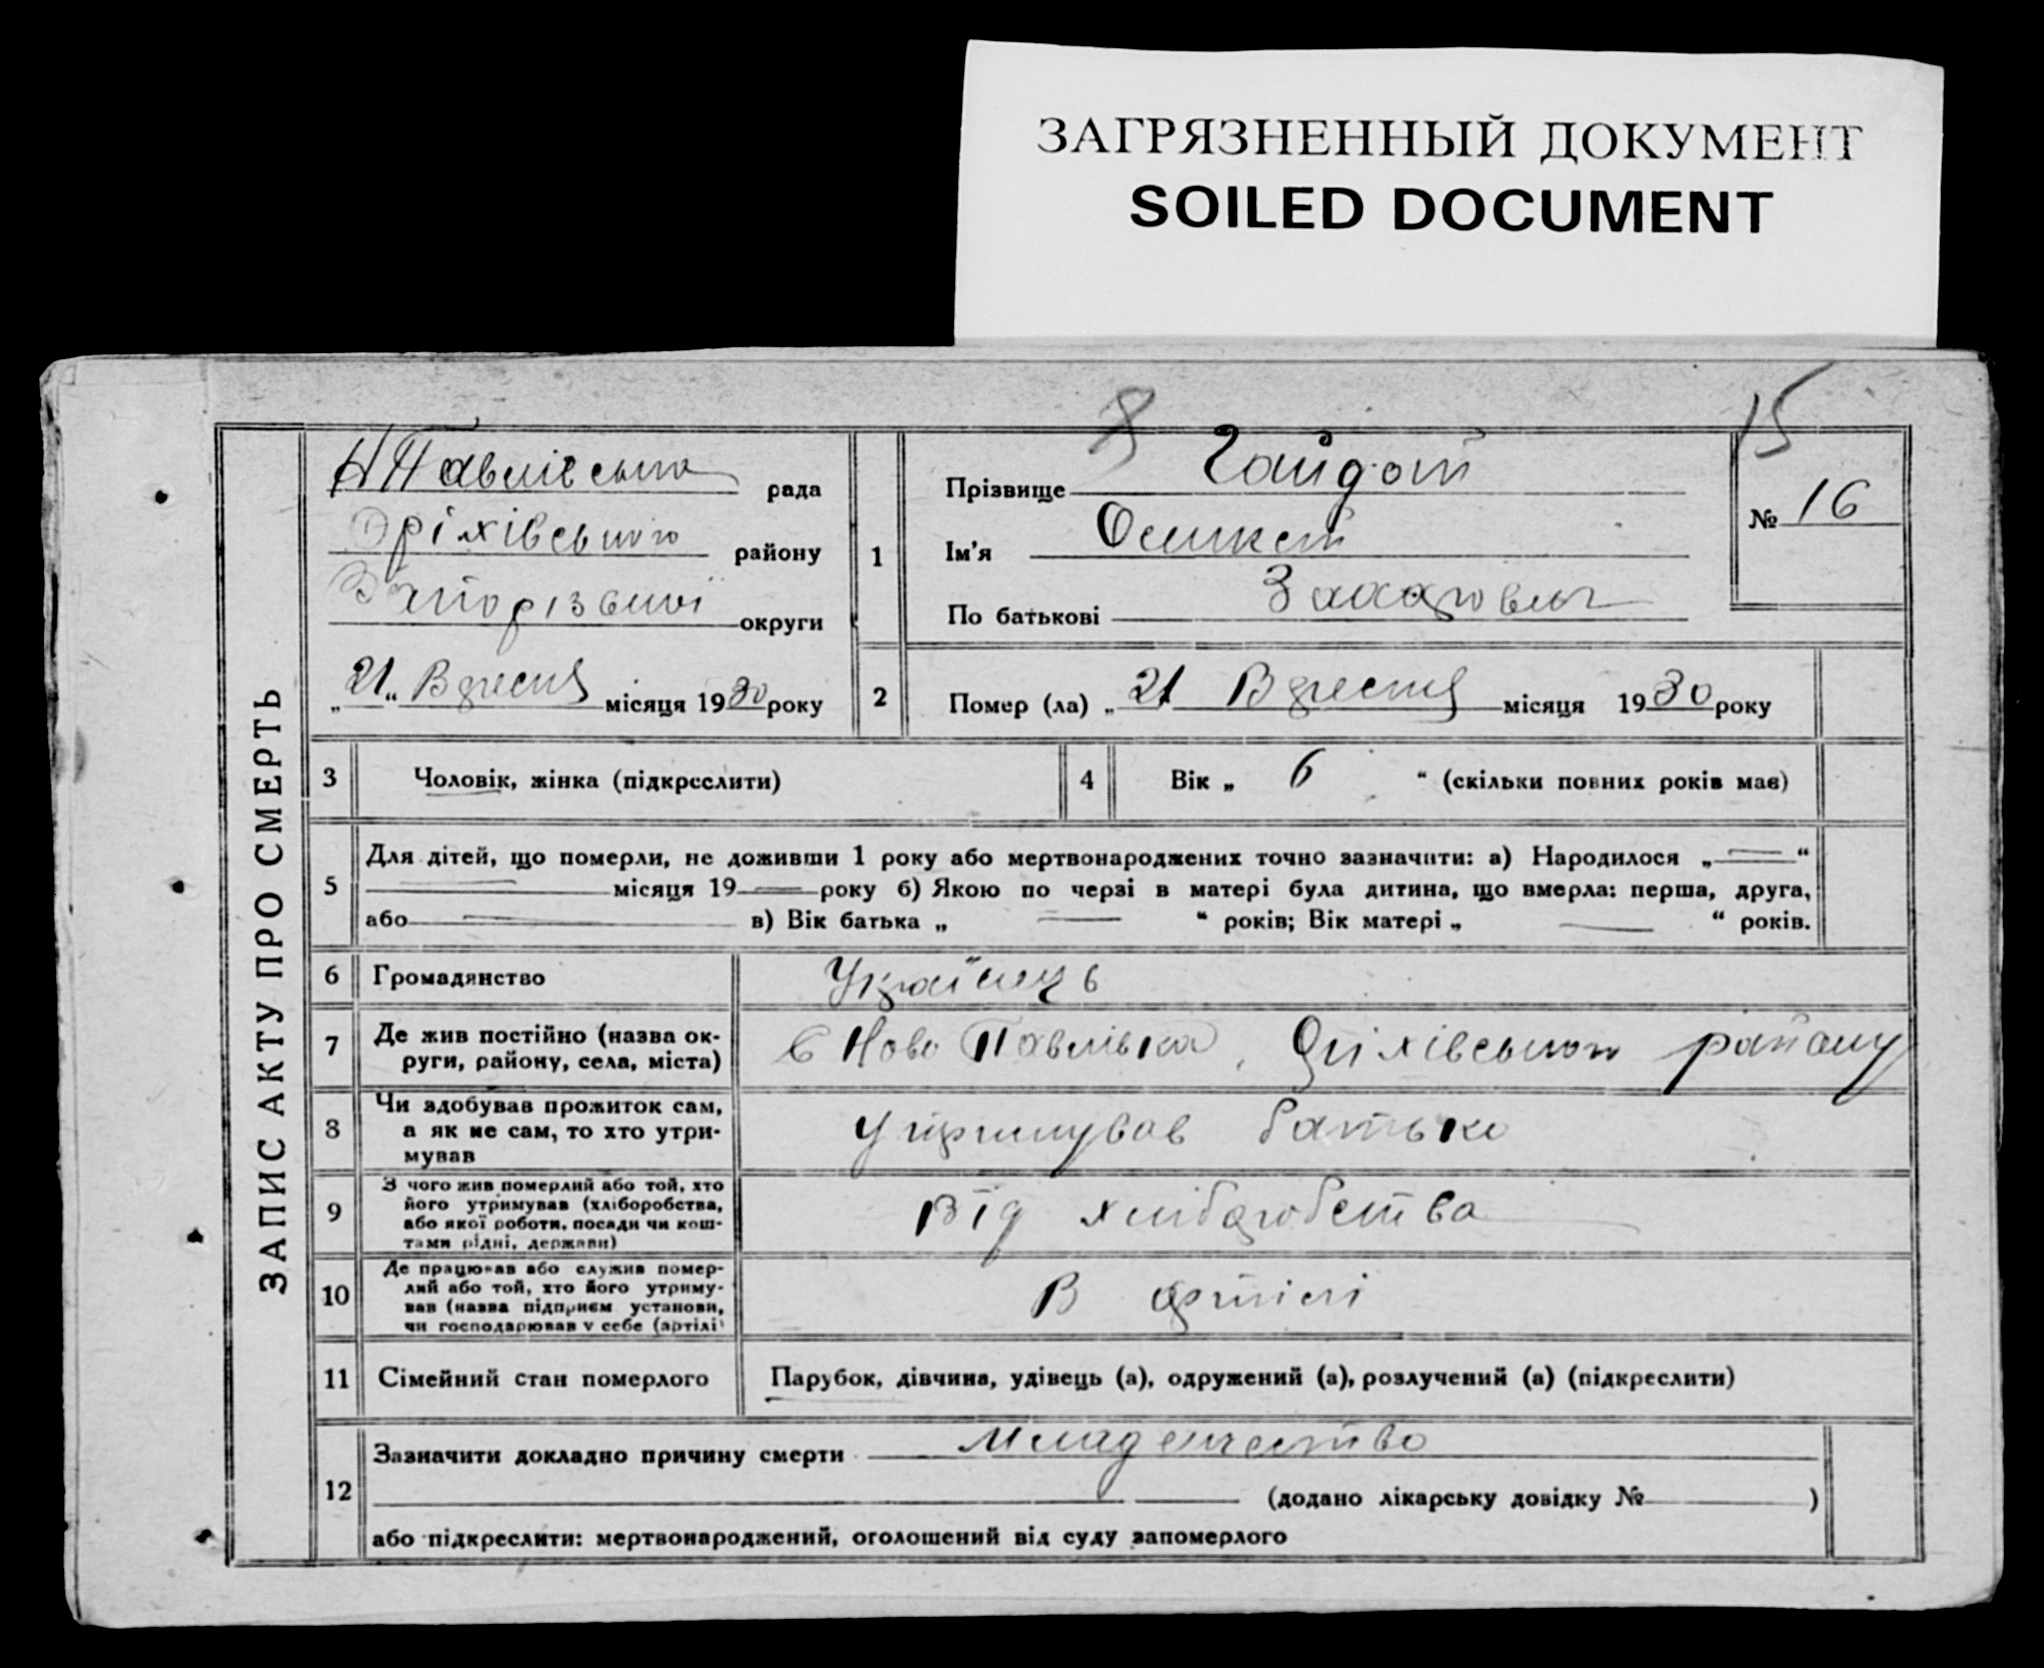 ЗАГРЯЗНЕННЫЙ ДОКУМЕНТ
SOILED DOCUMENT
8
15
ЗАПИС АКТУ ПРО СМЕРТЬ
Н Павлівська рада
Оріхівського району
Запорізької округи
„21“ Вресня місяця 1930 року
1
Прізвище Гайдот
Ім'я
По батькові Захарович
№ 16
2
Помер (ла) „21 Вресня місяця 1930 року
3 Чоловік, жінка (підкреслити)
4 Вік „ 6 “ (скільки повних років має)
5 Для дітей, що померли, не доживши 1 року або мертвонароджених точно зазначити: а) Народилося „—“
— місяця 19— року б) Якою по черзі в матері була дитина, що вмерла: перша, друга,
або — в) Вік батька „ — “ років; Вік матері „ — “ років.
6 Громадянство Українець
7 Де жив постійно (назва ок-
руги, району, села, міста)
с Ново Павлівка, Оріхівського району
8 Чи здобував прожиток сам,
а як не сам, то хто утри-
мував
Утримував батько
9 З чого жив померлий або той, хто
його утримував (хліборобства,
або якої роботи, посади чи кош-
тами рідні, держави)
Від хліборобства
10 Де працював або служив помер-
лий або той, хто його утриму-
вав (назва підприєм установи,
чи господарював у себе (артілі)
В артілі
11 Сімейний стан померлого
Парубок, дівчина, удівець (а), одружений (а), розлучений (а) (підкреслити)
12 Зазначити докладно причину смерти младенчество
(додано лікарську довідку № )
або підкреслити: мертвонароджений, оголошений від суду запомерлого